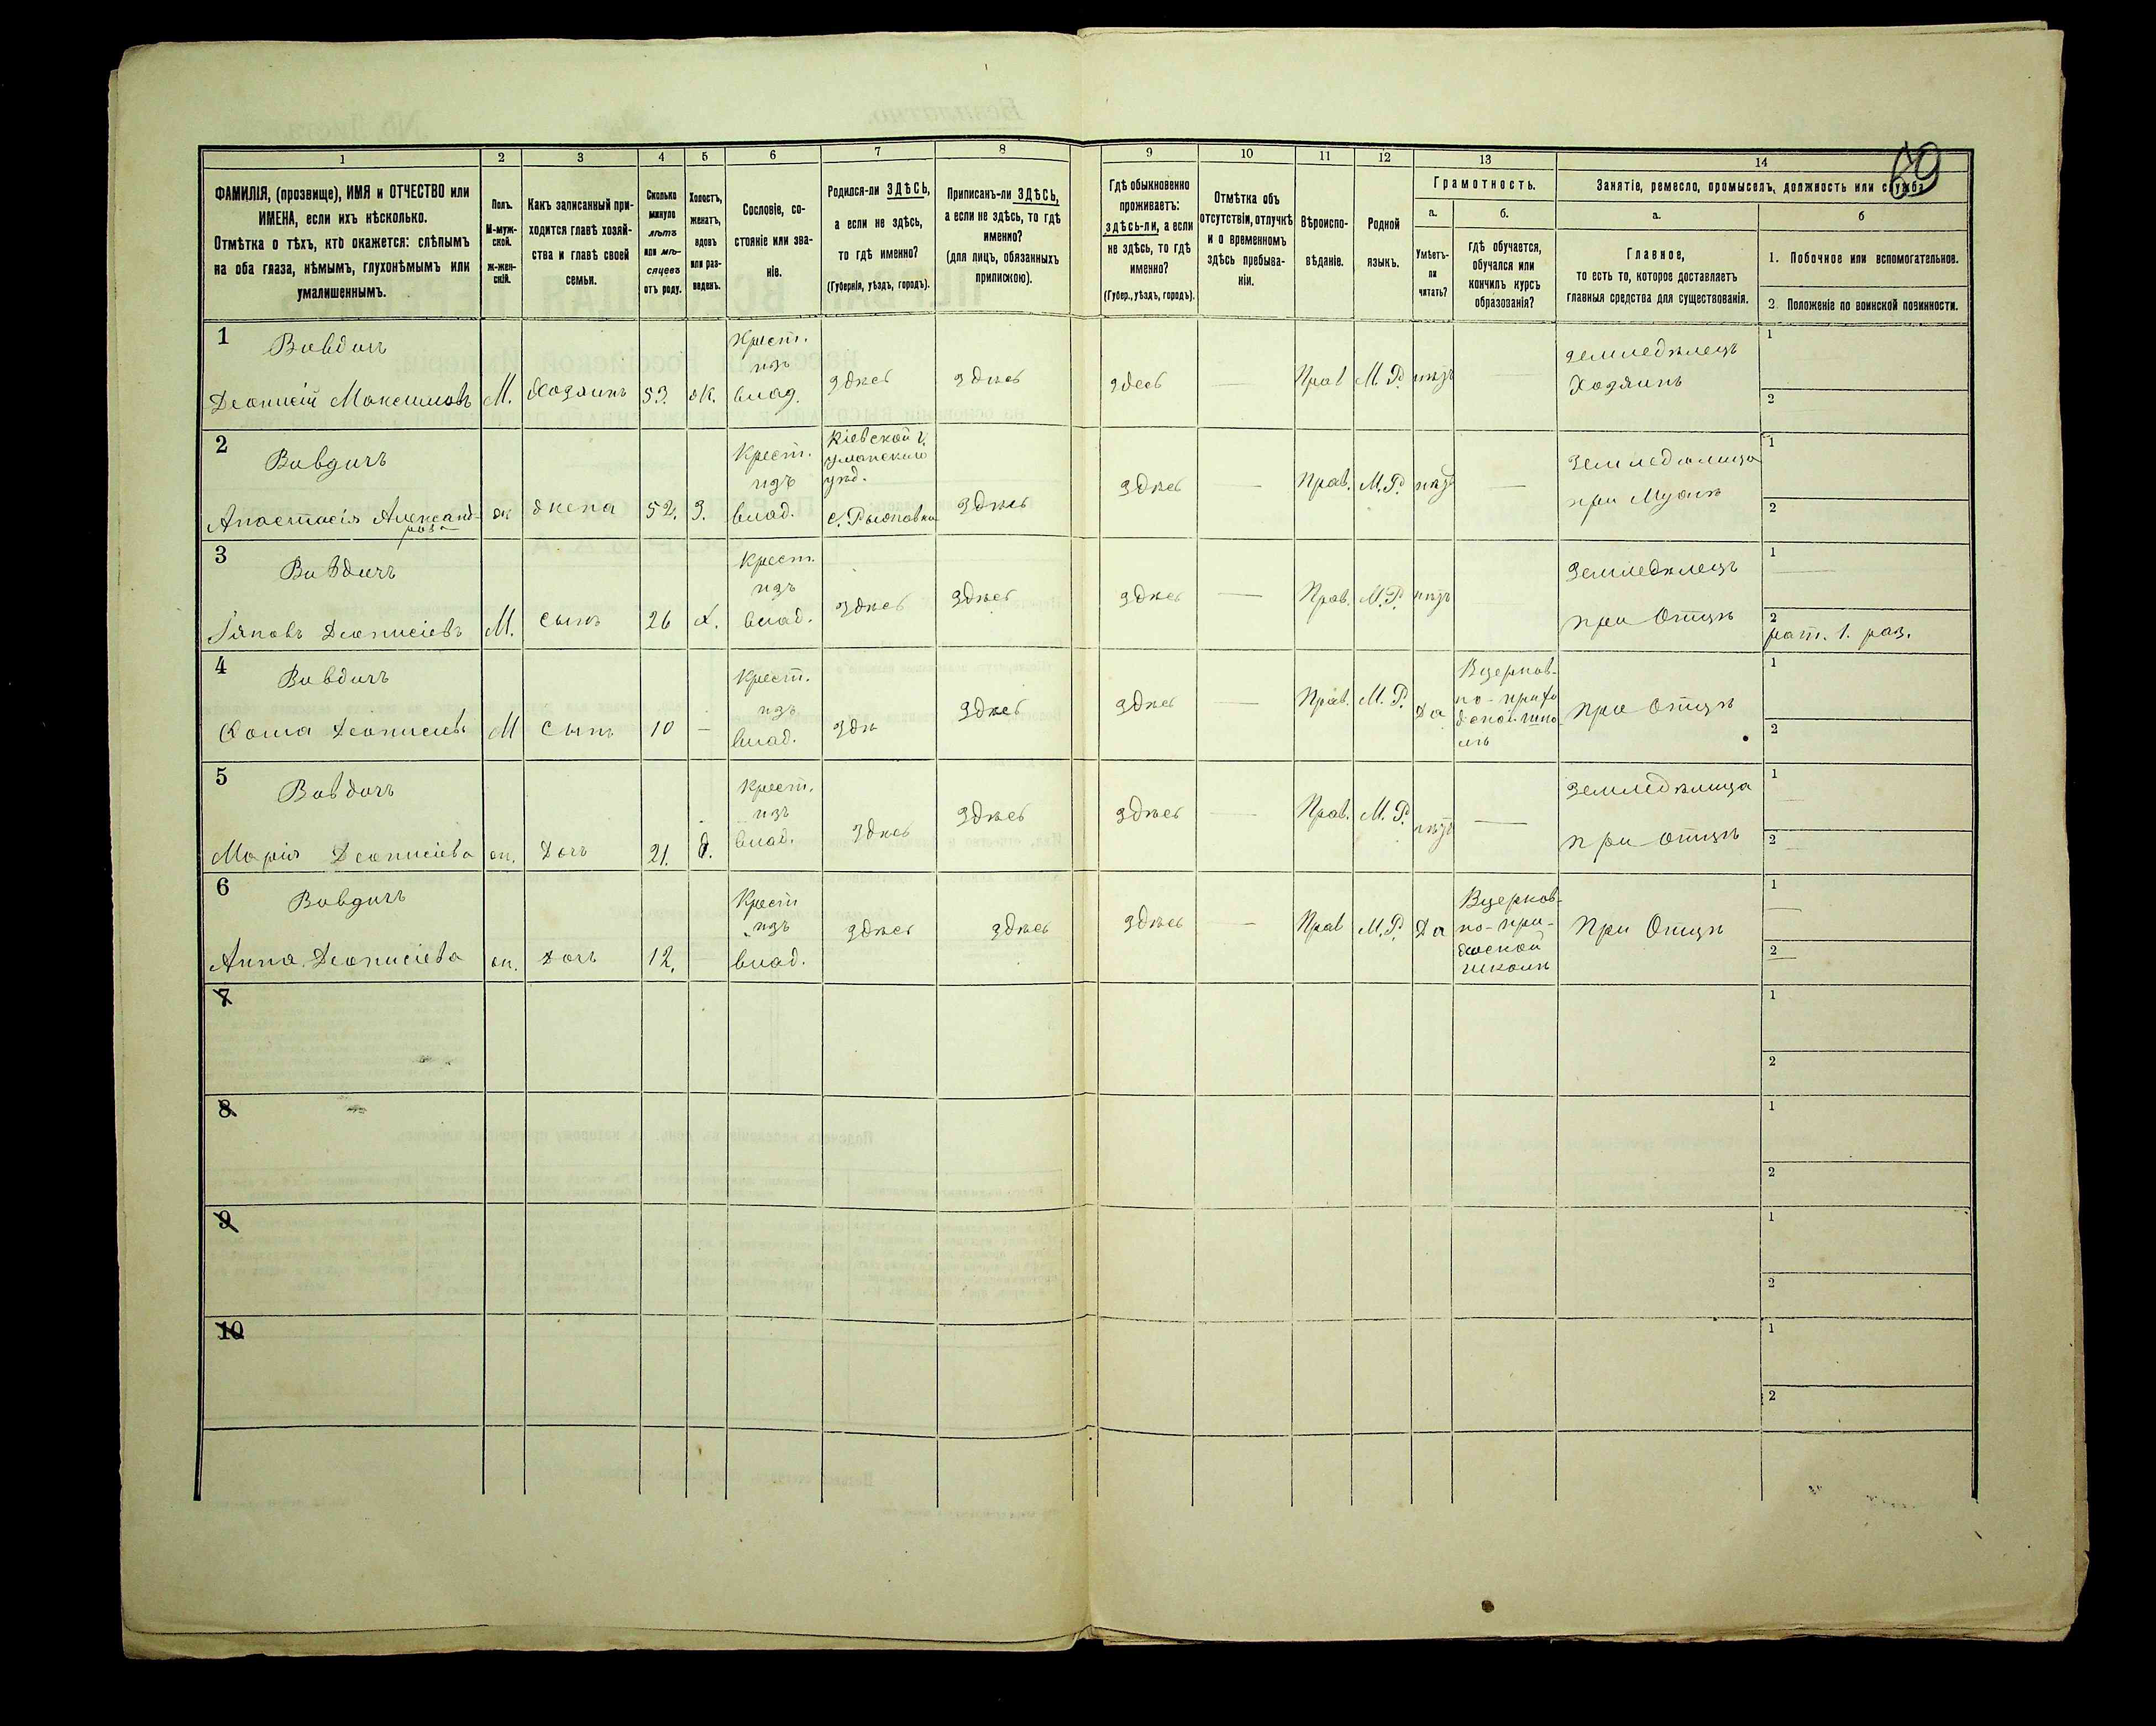 69
1 2 3 4 5 6 7 8 9 10 11 12 13 14
ФАМИЛІЯ, (прозвище), ИМЯ и ОТЧЕСТВО или
ИМЕНА, если ихъ нѣсколько.
Отмѣтка о тѣхъ, кто окажется: слѣпымъ
на оба глаза, нѣмымъ, глухонѣмымъ или
умалишеннымъ.
Полъ.
М-муж-
ской.
Ж-жен-
скій.
Какъ записанный при-
ходится главѣ хозяй-
ства и главѣ своей
семьи.
Сколько
минуло
лѣтъ
или мѣ-
сяцевъ
отъ роду.
Холостъ,
женатъ,
вдовъ
или раз-
веденъ.
Сословіе, со-
стояніе или зва-
ніе.
Родился-ли ЗДѢСЬ,
а если не здѣсь,
то гдѣ именно?
(Губернія, уѣздъ, городъ).
Приписанъ-ли ЗДѢСЬ,
а если не здѣсь, то гдѣ
именно?
(для лицъ, обязанныхъ
припискою).
Гдѣ обыкновенно
проживаетъ:
здѣсь-ли, а если
не здѣсь, то гдѣ
именно?
(Губер., уѣздъ, городъ).
Отмѣтка объ
отсутствіи, отлучкѣ
и о временномъ
здѣсь пребыва-
ніи.
Вѣроиспо-
вѣданіе.
Родной
языкъ.
Грамотность.
а.
Умѣетъ-
ли
читать?
б.
гдѣ обучается,
обучался или
кончилъ курсъ
образованія?
Занятіе, ремесло, промыселъ, должность или служба
а.
Главное,
то есть то, которое доставляетъ
главныя средства для существованія.
б
1. Побочное или вспомогательное.
2. Положеніе по воинской повинности.
1 Вовдичъ
Деонисій Максимовъ М. Хозяинъ 53. Ж. Крест.
изъ
влад. Здѣсь Здѣсь Здесь — Прав М.Р. нѣтъ — Земледѣлецъ
Хозяинъ 1 2
2 Вовдичъ
Анастасія Александ-
рова ж жена 52. З. Крест.
изъ
влад. Кіевской г.
уманскаго
уѣд.
Здѣсь Здѣсь — Прав. М.Р. нѣтъ — Земледѣлица
при Мужѣ 1 2
3 Вовдичъ
Іяковъ Деонисіевъ М. Сынъ 26 х. Крест.
изъ
влад. Здѣсь Здѣсь Здѣсь — Прав. М.Р. нѣтъ Земледѣлецъ
при Отцѣ 1 2
рат. 1. раз.
4 Вовдичъ
Кома Деонисіевъ М Сынъ 10 — Крест.
изъ
влад. Здѣ Здѣсь Здѣсь — Прав. М.Р. Да Вцерков-
но-прихо
дской шко
лѣ при Отцѣ 1 2
5 Вовдичъ
Марія Деонисіева ж. Дочь 21. д. Крест.
изъ
влад. Здѣсь Здѣсь Здѣсь — Прав. М.Р. нѣтъ — Земледѣлица
при Отцѣ 1 2
6 Вовдичъ
Анна Деонисіева ж. Дочь 12. Крест
изъ
влад. Здѣсь Здѣсь Здѣсь — Прав М.Р. Да Вцерков-
но-при-
ской
школѣ При Отцѣ 1 2
7 1 2
8 1 2
9 1 2
10 1 2